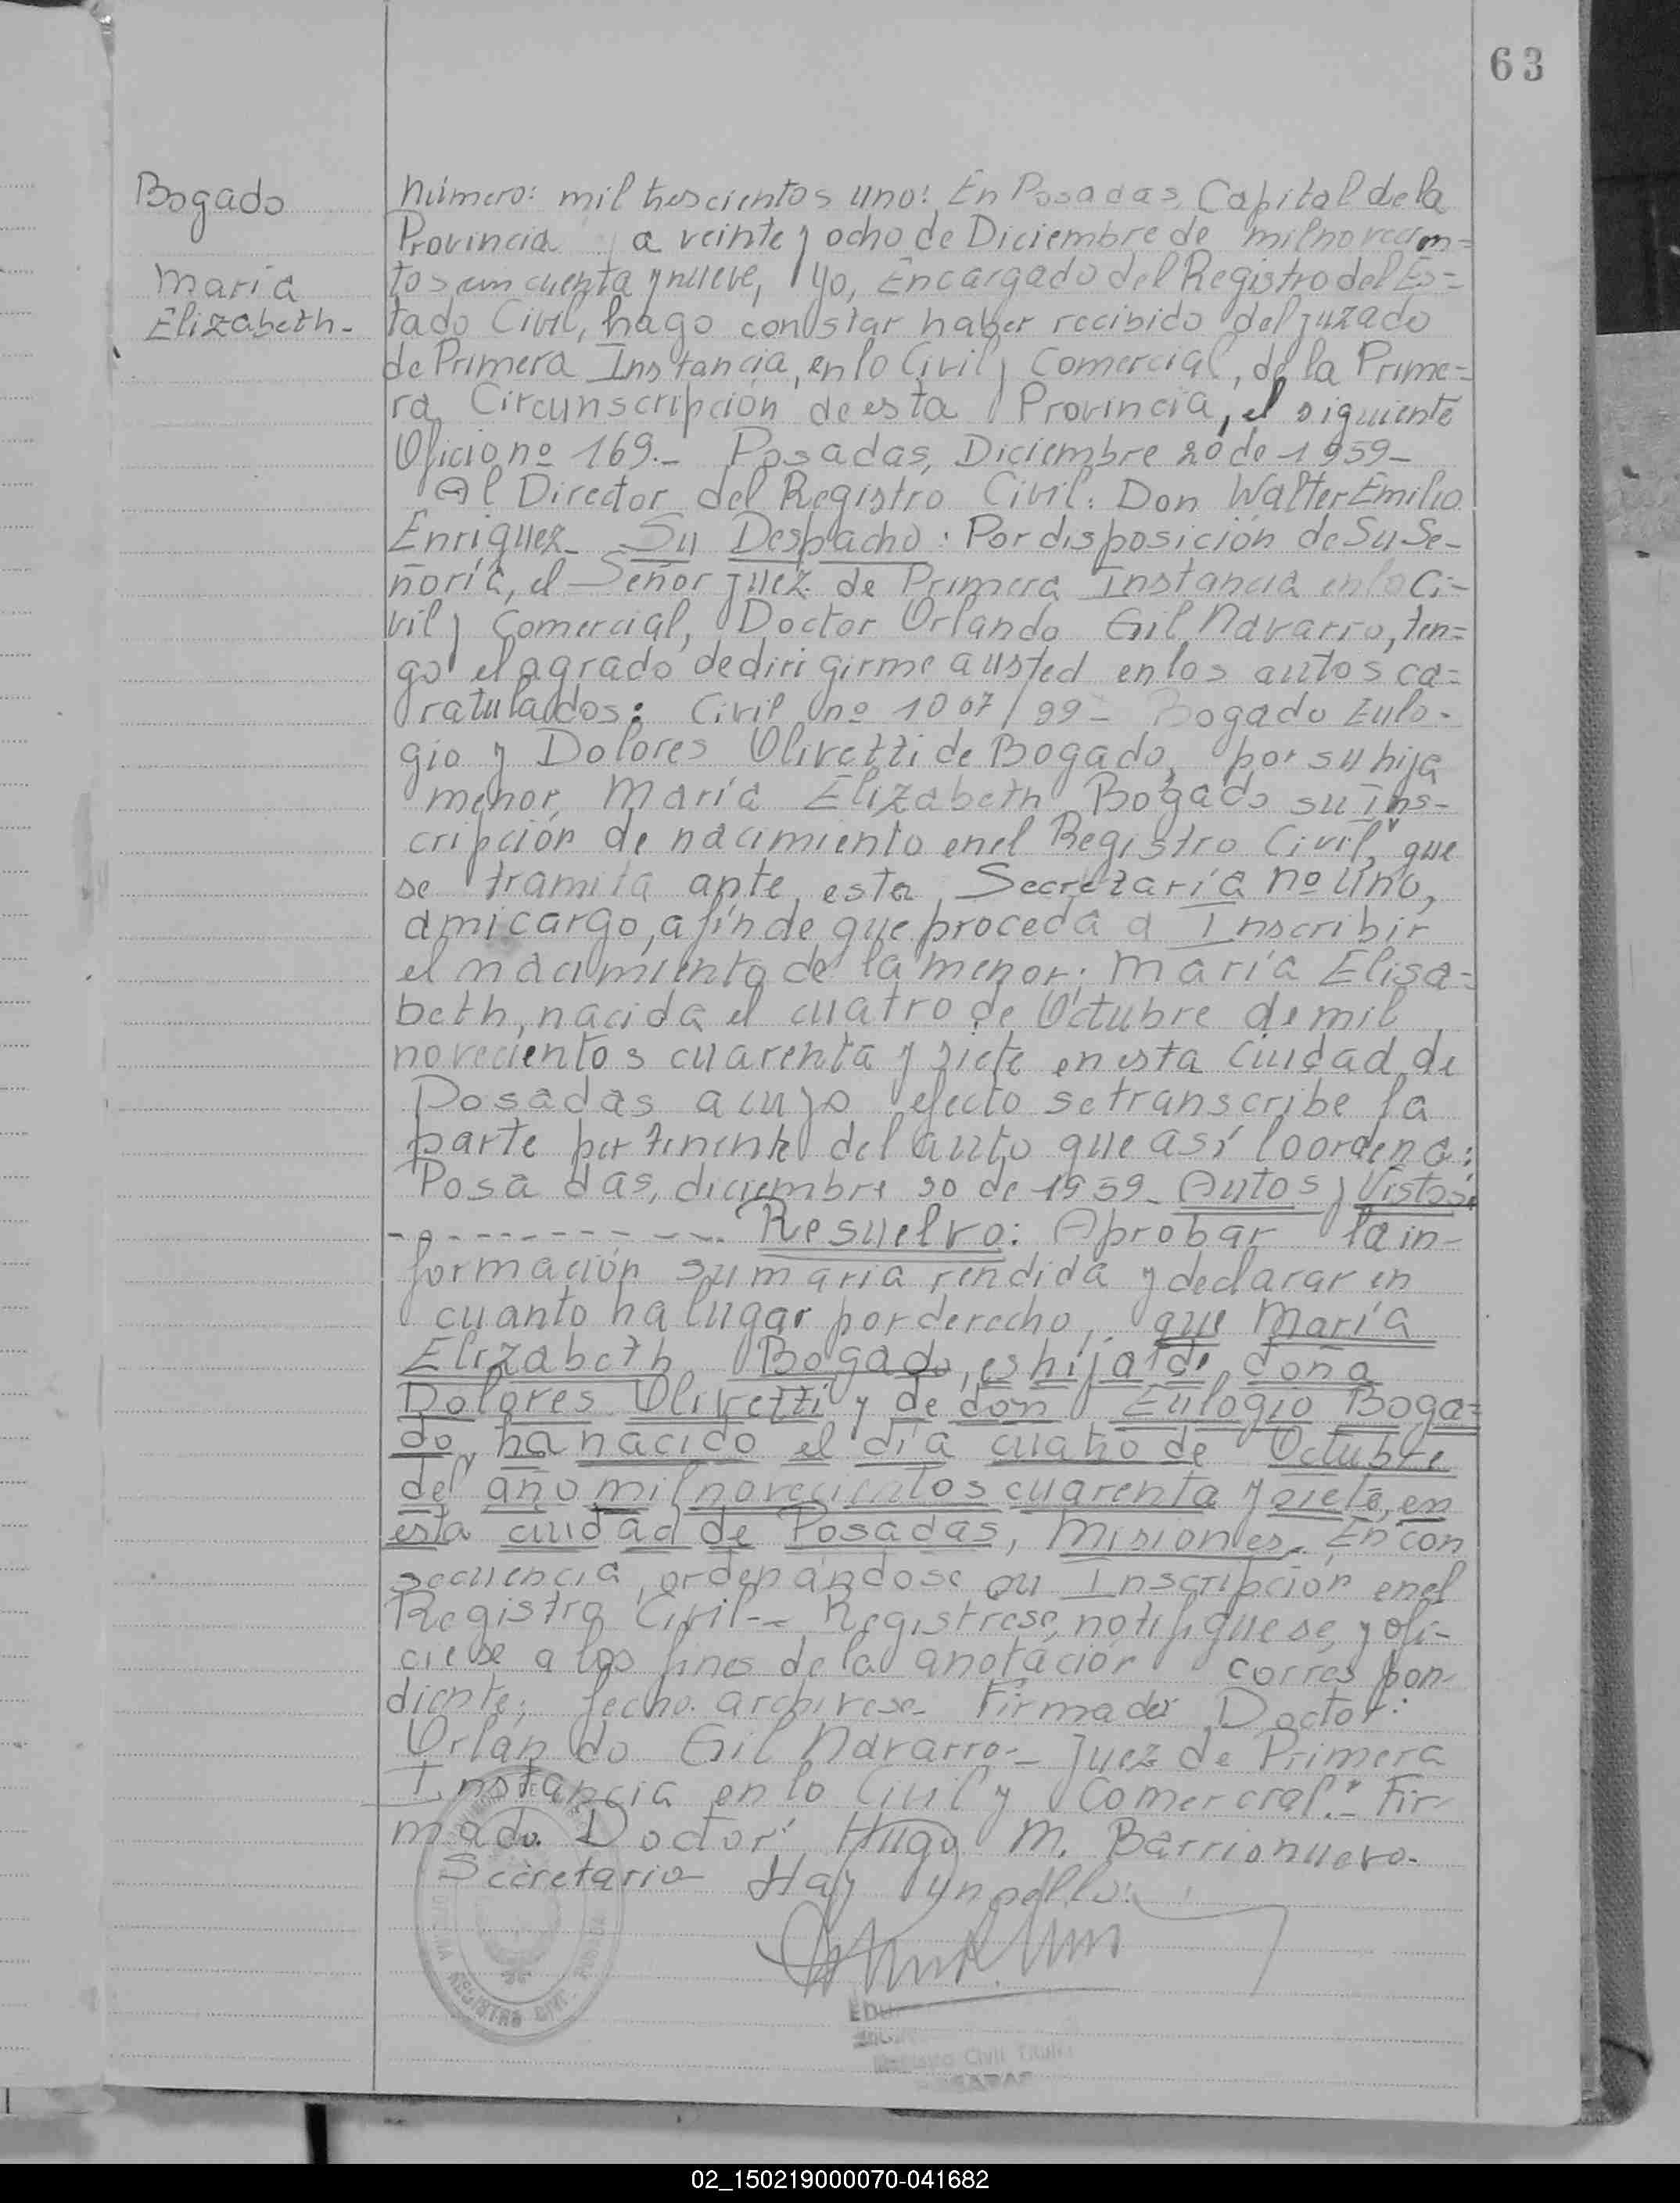 63
Bogado
María
Elizabeth-
Número: mil trescientos uno: En Posadas, Capital de la
Provincia a veinte y ocho de Diciembre de mil novecien=
tos cincuenta y nueve, yo, Encargado del Registro del Es=
tado Civil, hago constar haber recibido del juzado
de Primera Instancia, en lo Civil y Comercial, de la Prime=
ra Circunscripción de esta Provincia, el siguiente
Oficio nº 169.- Posadas, Diciembre 20 de 1959-
Al Director del Registro Civil: Don Walter Emilio
Enriquez- Su Despacho: Por disposición de Su Se-
ñoría, el Señor juez de Primera Instancia en lo Ci-
vil y Comercial, Doctor Orlando Gil Navarro, ten=
go el agrado de dirigirme a usted en los autos ca=
ratulados: Civil nº 1067/99- Bogado Eulo-
gio y Dolores Olivetti de Bogado, por su hija
menor, María Elizabeth Bogado su Ins-
cripción de nacimiento en el Registro Civil", que
se tramita ante esta Secretaría nº Uno,
a mi cargo, a fin de que proceda a Inscribir
el nacimiento de la menor: María Elisa=
beth, nacida el cuatro de Octubre de mil
novecientos cuarenta y siete en esta Ciudad de
Posadas a cuyo efecto se transcribe la
parte pertinente del auto que así lo ordena:
Posadas, diciembre 20 de 1959- Autos y Vistos:
- - - - - - - - - - Resuelvo: Aprobar la in-
formación sumaria rendida y declarar en
cuanto ha lugar por derecho, que María
Elizabeth Bogado, es hija de doña
Dolores Olivetti y de don Eulogio Boga=
do, ha nacido el día cuatro de Octubre
del año mil novecientos cuarenta y siete, en
esta ciudad de Posadas, Misiones. En con
secuencia, ordenándose su Inscripción en el
Registro Civil-- Registrese, notifiquese, y ofi-
ciese a los fines de la anotación correspon-
diente; fecho. archivese- Firmado: Doctor:
Orlando Gil Navarro-- Juez de Primera
Instancia en lo Civil y Comercial."- Fir-
mado. Doctor: Hugo M. Barrionuevo-
Secretario- Hay un sello:
Registro Civil Titular
POSADAS
02_150219000070-041682